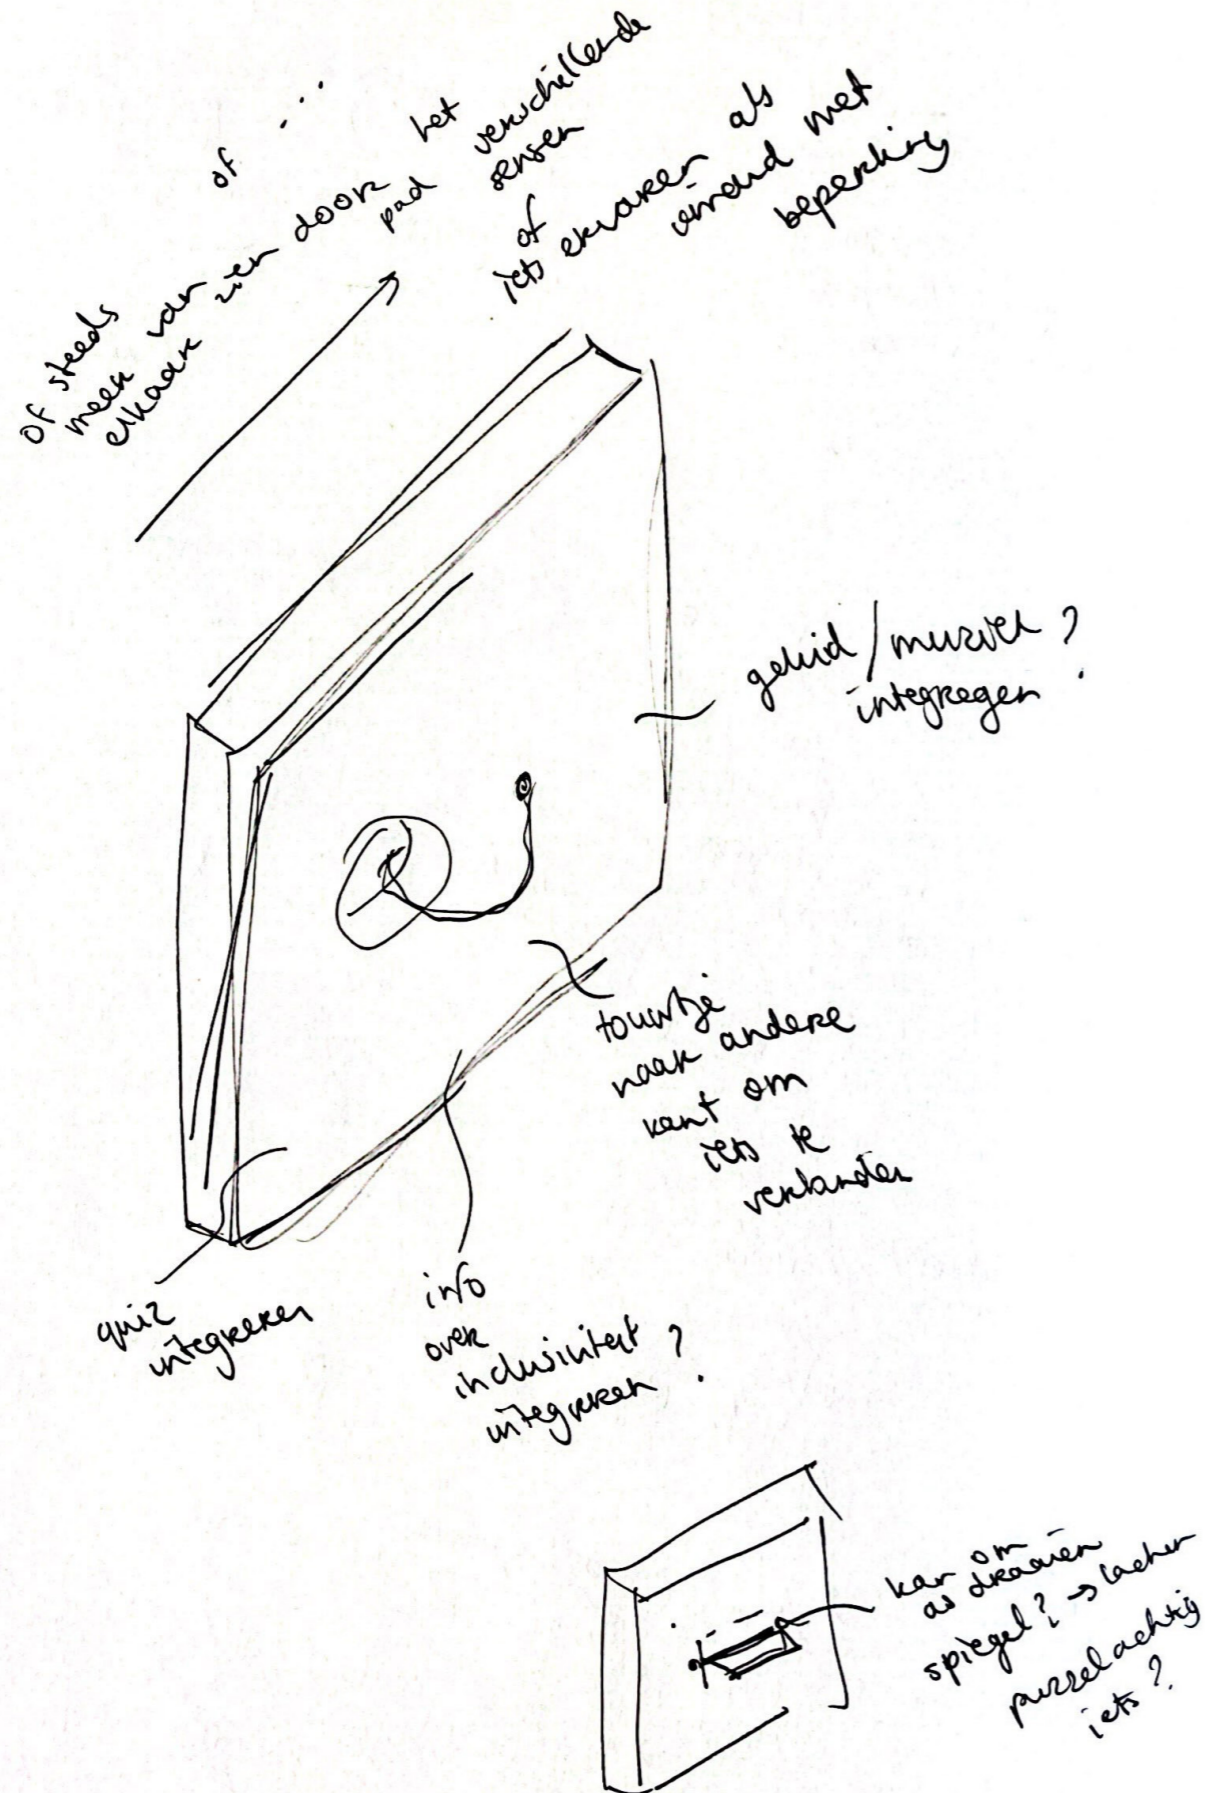 of steeds
meer van
elkaar zien door
of ...
het
pad
verschillende
sensen
of
iets ervaren als
iemand met
beperking
geluid / muziek ?
integregen
touwtje
naar andere
kant om
iets te
veranderen
quiz
integreren
info
over
inclusiviteit ?
integreren
kan om
as draaien
spiegel? → lachen
puzzelachtig
iets?